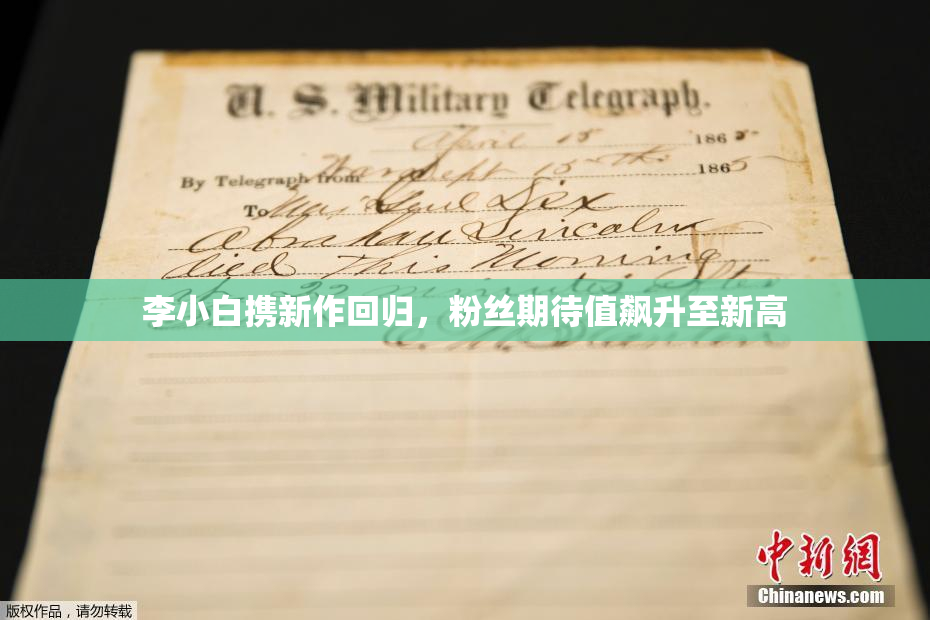 U. S. Military Telegraph.
April 15 1865
By Telegraph from War Dept 15th 1865
To Maj Genl Dix
Abraham Lincoln
died This Morning
22 minutes after
李小白携新作回归，粉丝期待值飙升至新高
Stanton
中新网
Chinanews.com
版权作品，请勿转载